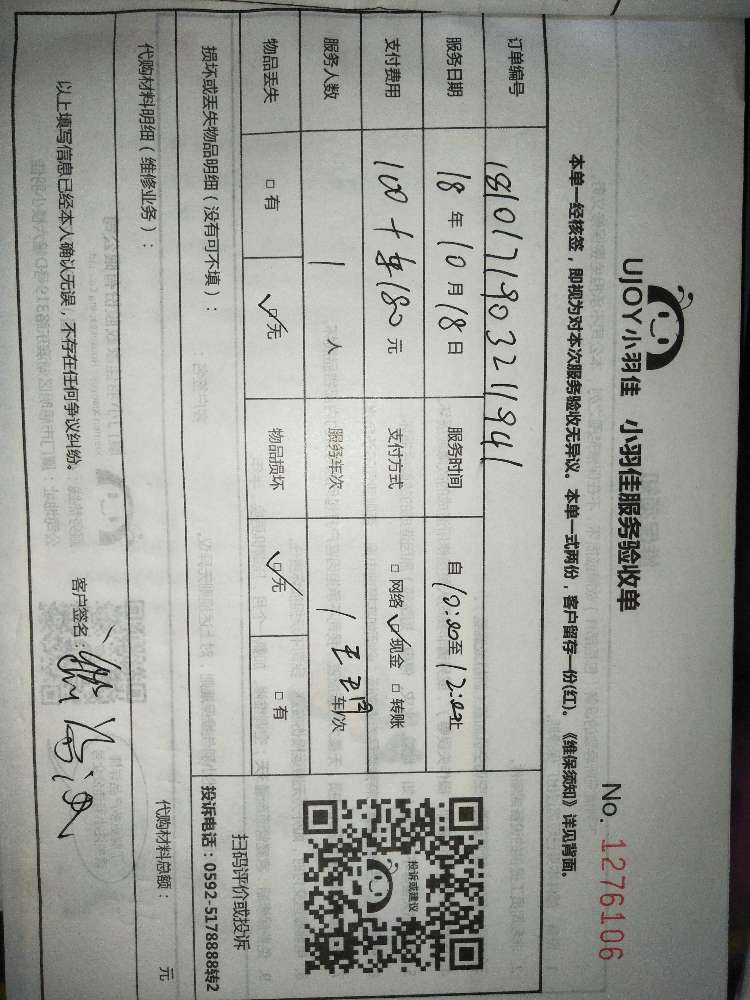 UJOY小羽佳 小羽佳服务验收单
No. 1276106
本单一经核签，即视为对本次服务验收无异议。本单一式两份，客户留存一份(红)。《维保须知》详见背面。
订单编号
服务日期 18 年 10 月 18 日 服务时间 自 10:00 至 12:00 止
支付费用 元 支付方式 □ 网络 ☑ 现金 □ 转账
服务人数 1 人 服务车次 1 车/次
物品丢失 □ 有 ☑ 无 物品损坏 ☑ 无 □ 有
投诉或建议
扫码评价或投诉
投诉电话：0592-5178888转2
损坏或丢失物品明细（没有可不填）：
代购材料明细（维修业务）： 代购材料总额： 元
以上填写信息已经本人确认无误，不存在任何争议纠纷。 客户签名：